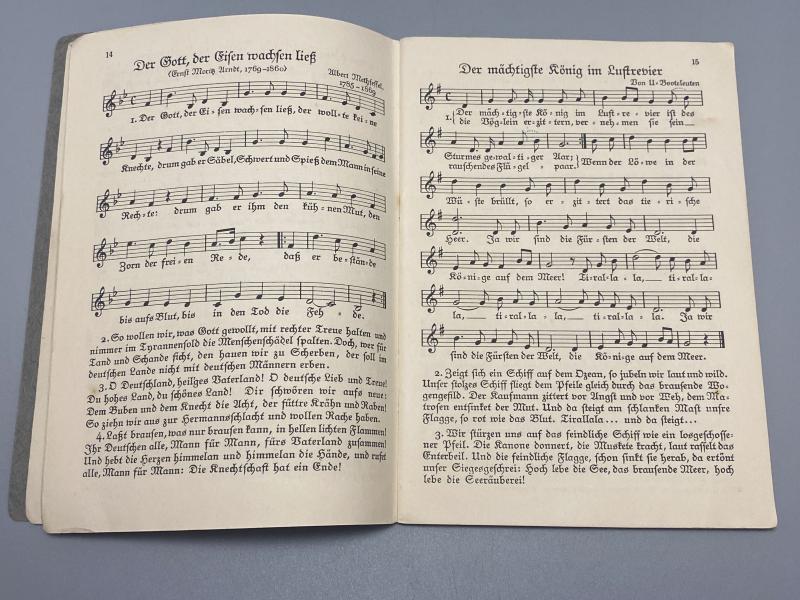 14
Der Gott, der Eisen wachsen ließ
(Ernst Moritz Arndt, 1769-1860)
Albert Methfessel.
1785-1869
1. Der Gott, der Ei- sen wach- sen ließ, der woll- te kei- ne
Knechte, drum gab er Säbel, Schwert und Spieß dem Mann in seine
Rech- te: drum gab er ihm den küh- nen Mut, den
Zorn der frei- en Re- de, daß er be- stän- de
bis aufs Blut, bis in den Tod die Feh- de.
2. So wollen wir, was Gott gewollt, mit rechter Treue halten und
nimmer im Tyrannensold die Menschenschädel spalten. Doch, wer für
Tand und Schande ficht, den hauen wir zu Scherben, der soll im
deutschen Lande nicht mit deutschen Männern erben.
3. O Deutschland, heilges Vaterland! O deutsche Lieb und Treue!
Du hohes Land, du schönes Land! Dir schwören wir aufs neue:
Dem Buben und dem Knecht die Acht, der füttre Krähn und Raben!
So ziehn wir aus zur Hermannsschlacht und wollen Rache haben.
4. Laßt brausen, was nur brausen kann, in hellen lichten Flammen!
Ihr Deutschen alle, Mann für Mann, fürs Vaterland zusammen!
Und hebt die Herzen himmelan und himmelan die Hände, und rufet
alle, Mann für Mann: Die Knechtschaft hat ein Ende!
15
Der mächtigste König im Luftrevier
Von U-Bootsleuten
1. Der mäch- tig- ste Kö- nig im Luft- re- vier ist des
die Vöglein er- zit- tern, ver- neh- men sie sein
Sturmes ge- wal- ti- ger Aar; Wenn der Lö- we in der
rauschendes Flü- gel- paar.
Wü- ste brüllt, so er- zit- tert das tie- ri- sche
Heer. Ja wir sind die Für- sten der Welt, die
Kö- ni- ge auf dem Meer! Ti- ral- la- la, ti- ral- la-
la, ti- ral- la- la, ti- ral- la- la. Ja wir
sind die Fürsten der Welt, die Kö- nige auf dem Meer.
2. Zeigt sich ein Schiff auf dem Ozean, so jubeln wir laut und wild.
Unser stolzes Schiff fliegt dem Pfeile gleich durch das brausende Wo-
gengefild. Der Kaufmann zittert vor Angst und vor Weh, dem Ma-
trosen entsinket der Mut. Und da steigt am schlanken Mast unsre
Flagge, so rot wie das Blut. Tirallala... und da steigt...
3. Wir stürzen uns auf das feindliche Schiff wie ein losgeschosse-
ner Pfeil. Die Kanone donnert, die Muskete kracht, laut rasselt das
Enterbeil. Und die feindliche Flagge, schon sinkt sie herab, da ertönt
unser Siegesgeschrei: Hoch lebe die See, das brausende Meer, hoch
lebe die Seeräuberei!